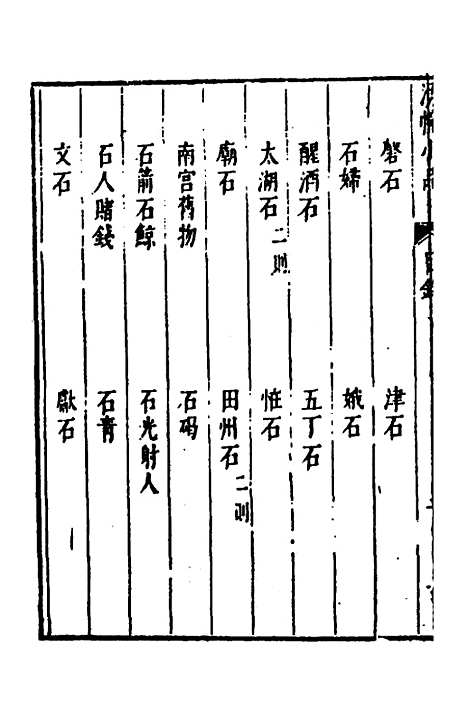 磬石　津石
石婦　娥石
醒酒石　五丁石
太湖石二則　怪石
廟石　田州石二則
南宫舊物　石碣
石箭石鯨　石光射人
石人賭錢　石青
文石　獻石